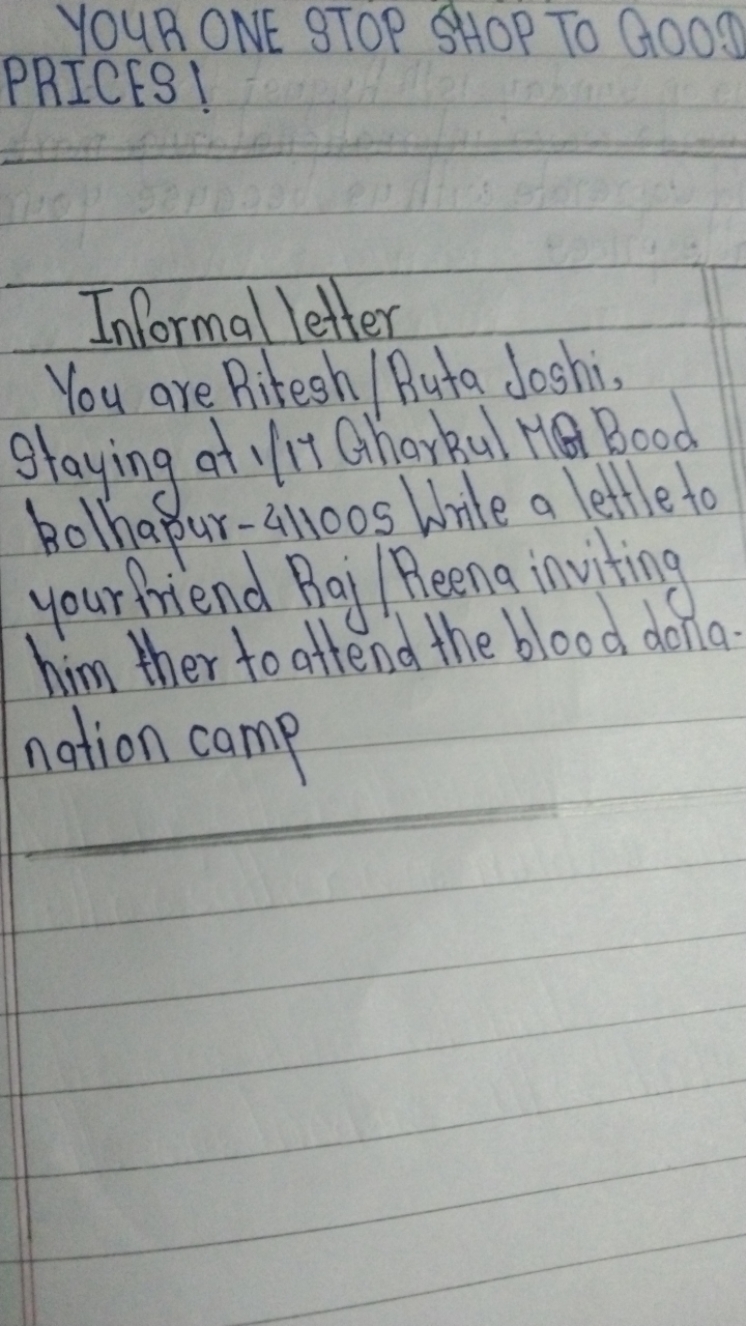 YOUR ONE STOP SHOP TO GOOD
PRICES!
Informal letter
You are Ritesh/Ruta Joshi,
Staying at 1/17 Gharkul MG Rood
Kolhapur-411005 Write a lettle to
your friend Raj/Reena inviting
him ther to attend the blood dona-
nation camp